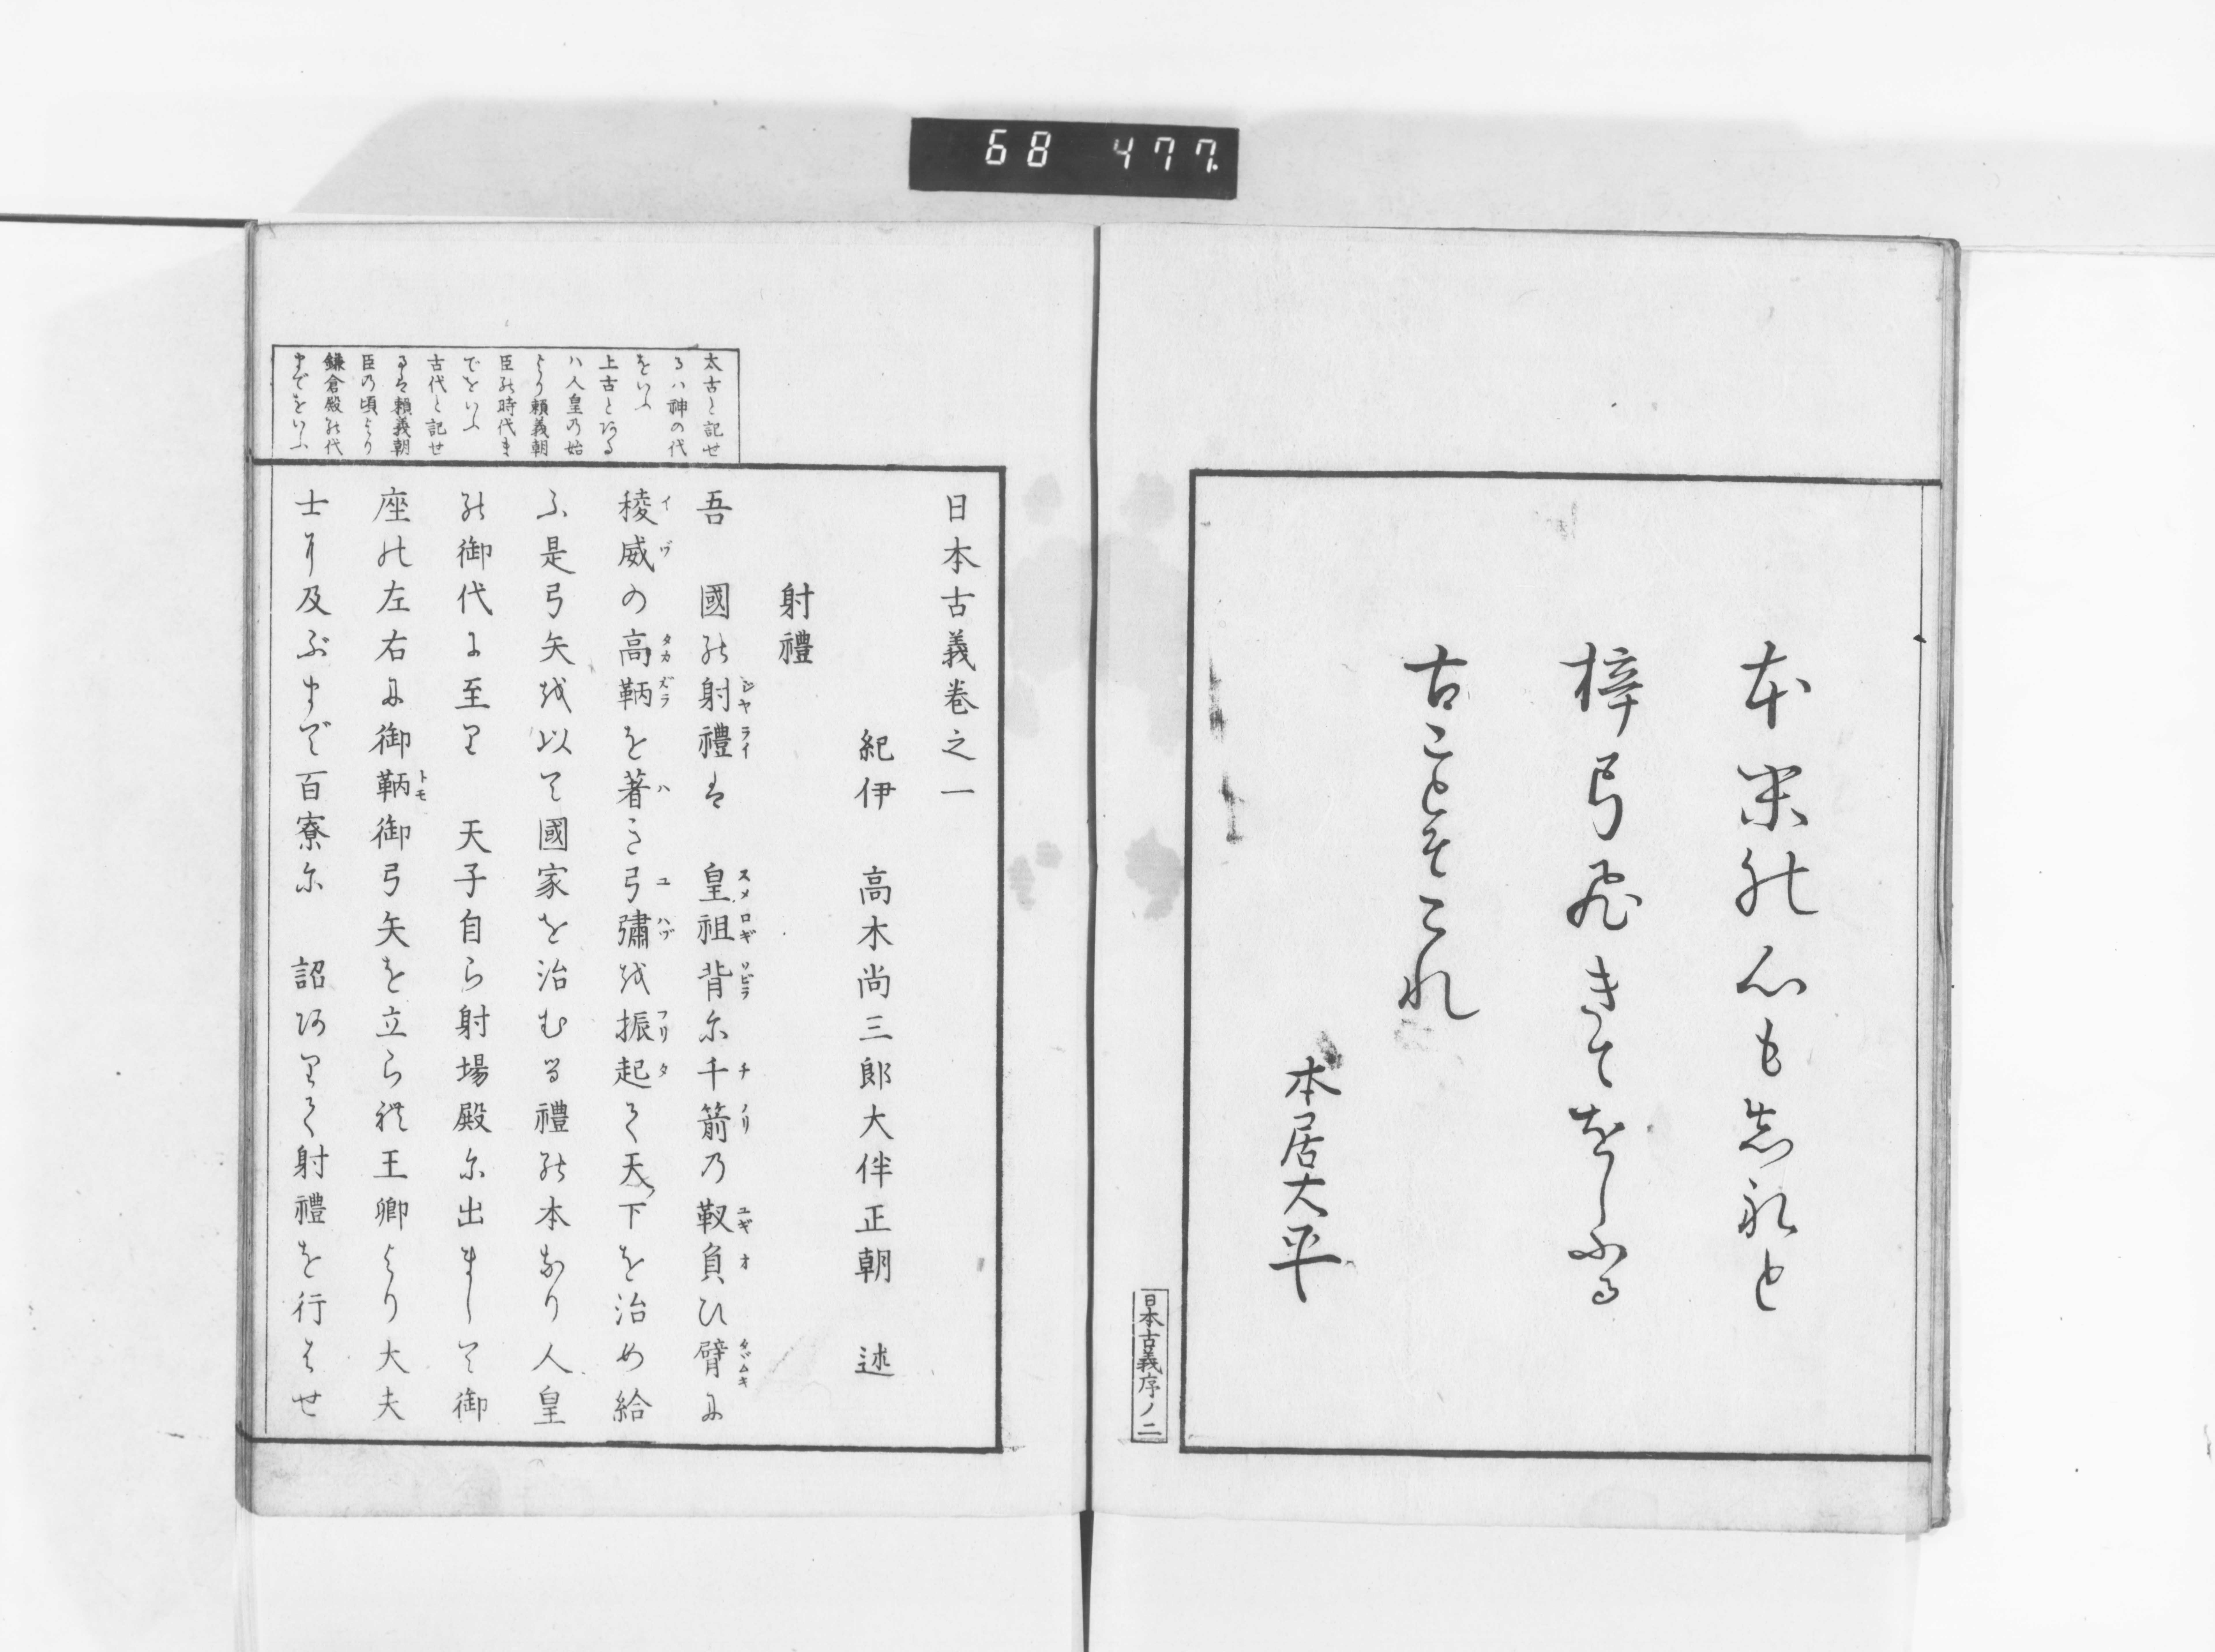 68 477
本末の心もしれと
梓弓飛きてをしふる
古ことそこれ
本居大平
日本古義序ノ二
日本古義巻之一
紀伊 高木尚三郎大伴正朝 述
射禮
吾 國の射禮は 皇祖背に千箭の靫負ひ臂に
稜威の高鞆を著き弓彇を振起て天下を治め給
ふ是弓矢を以て國家を治むる禮の本なり人皇
の御代に至り 天子自ら射場殿に出まして御
座の左右に御鞆御弓矢を立られ王卿より大夫
士に及ぶまで百寮に 詔ありて射禮を行はせ
太古と記せ
るハ神の代
をいふ
上古とある
ハ人皇の始
より頼義朝
臣の時代ま
でをいふ
古代と記せ
るは頼義朝
臣の頃より
鎌倉殿の代
までをいふ